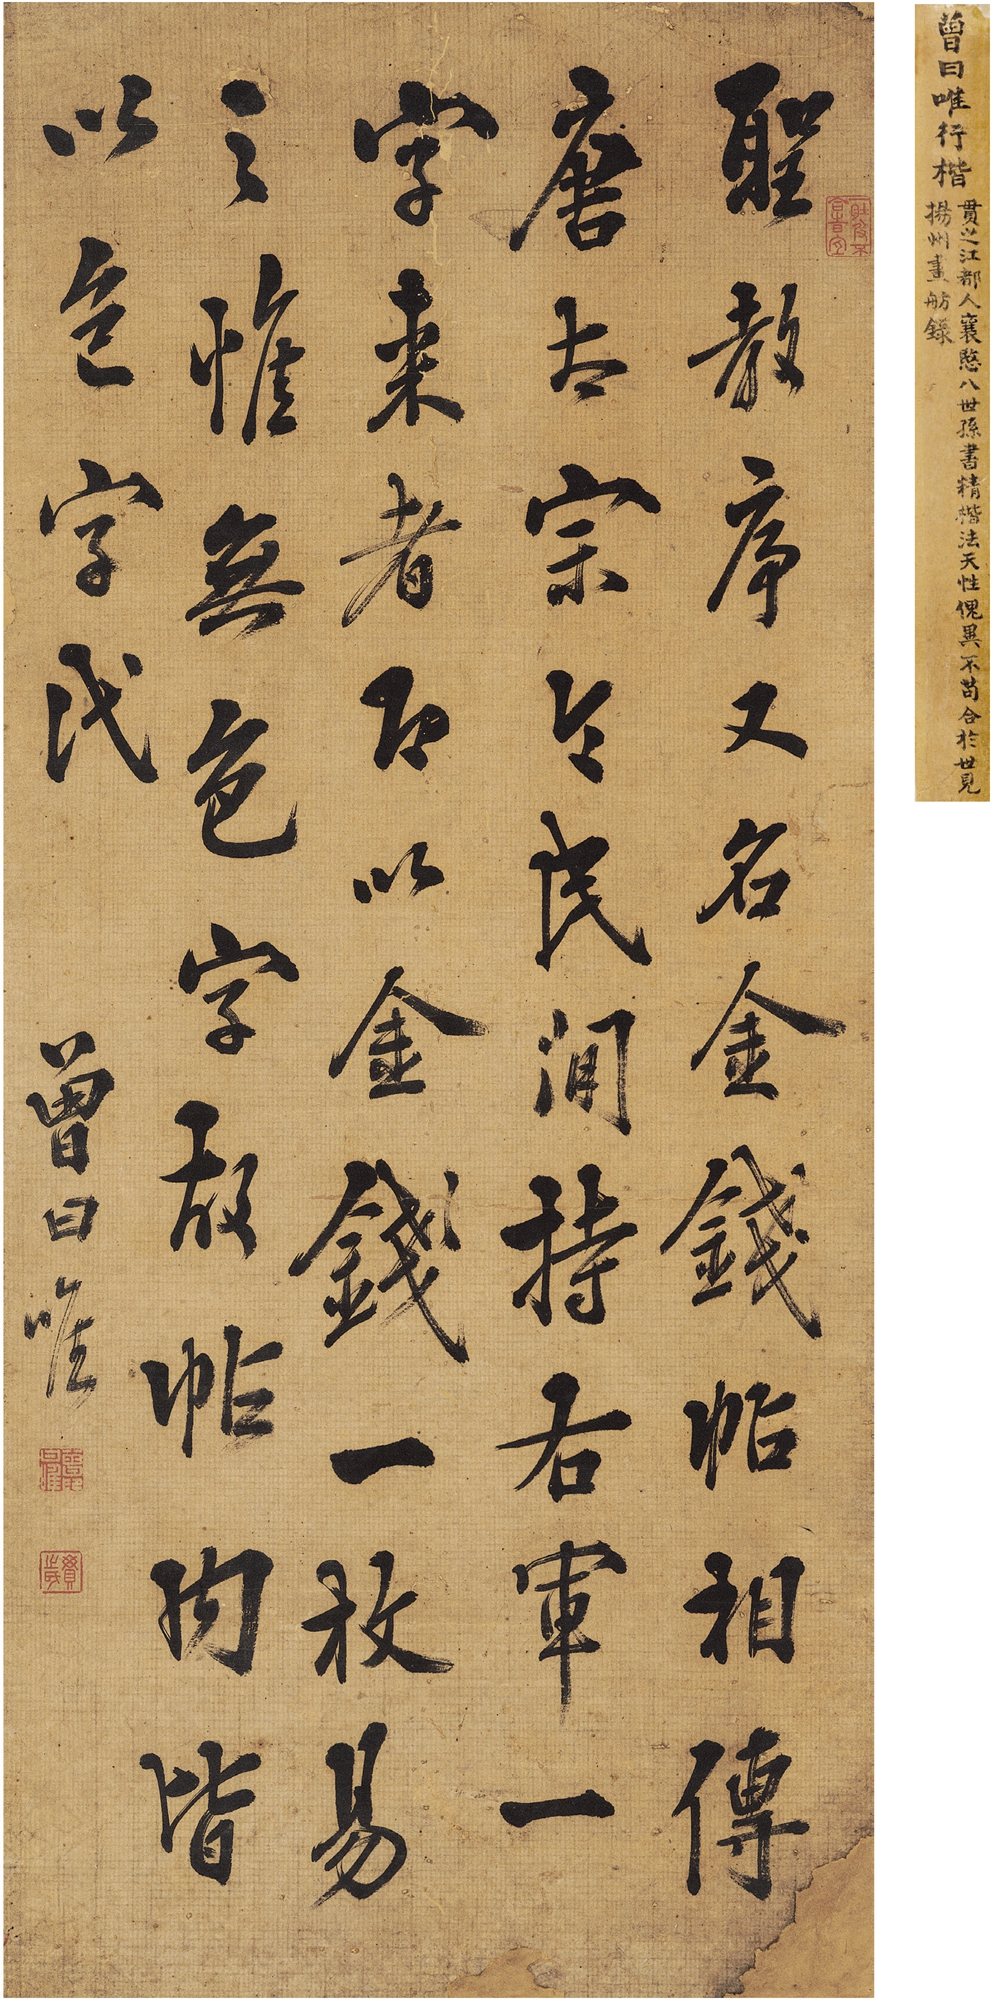 聖教序又名金錢帖相傳
唐太宗令民間持右軍一
字來者即以金錢一枚易
之惟無色字故帖内皆
以字代
曾曰唯
曾曰唯行楷
貫之江都人襄愍八世孫書精楷法天性傀異不苟合於世見
揚州畫舫錄